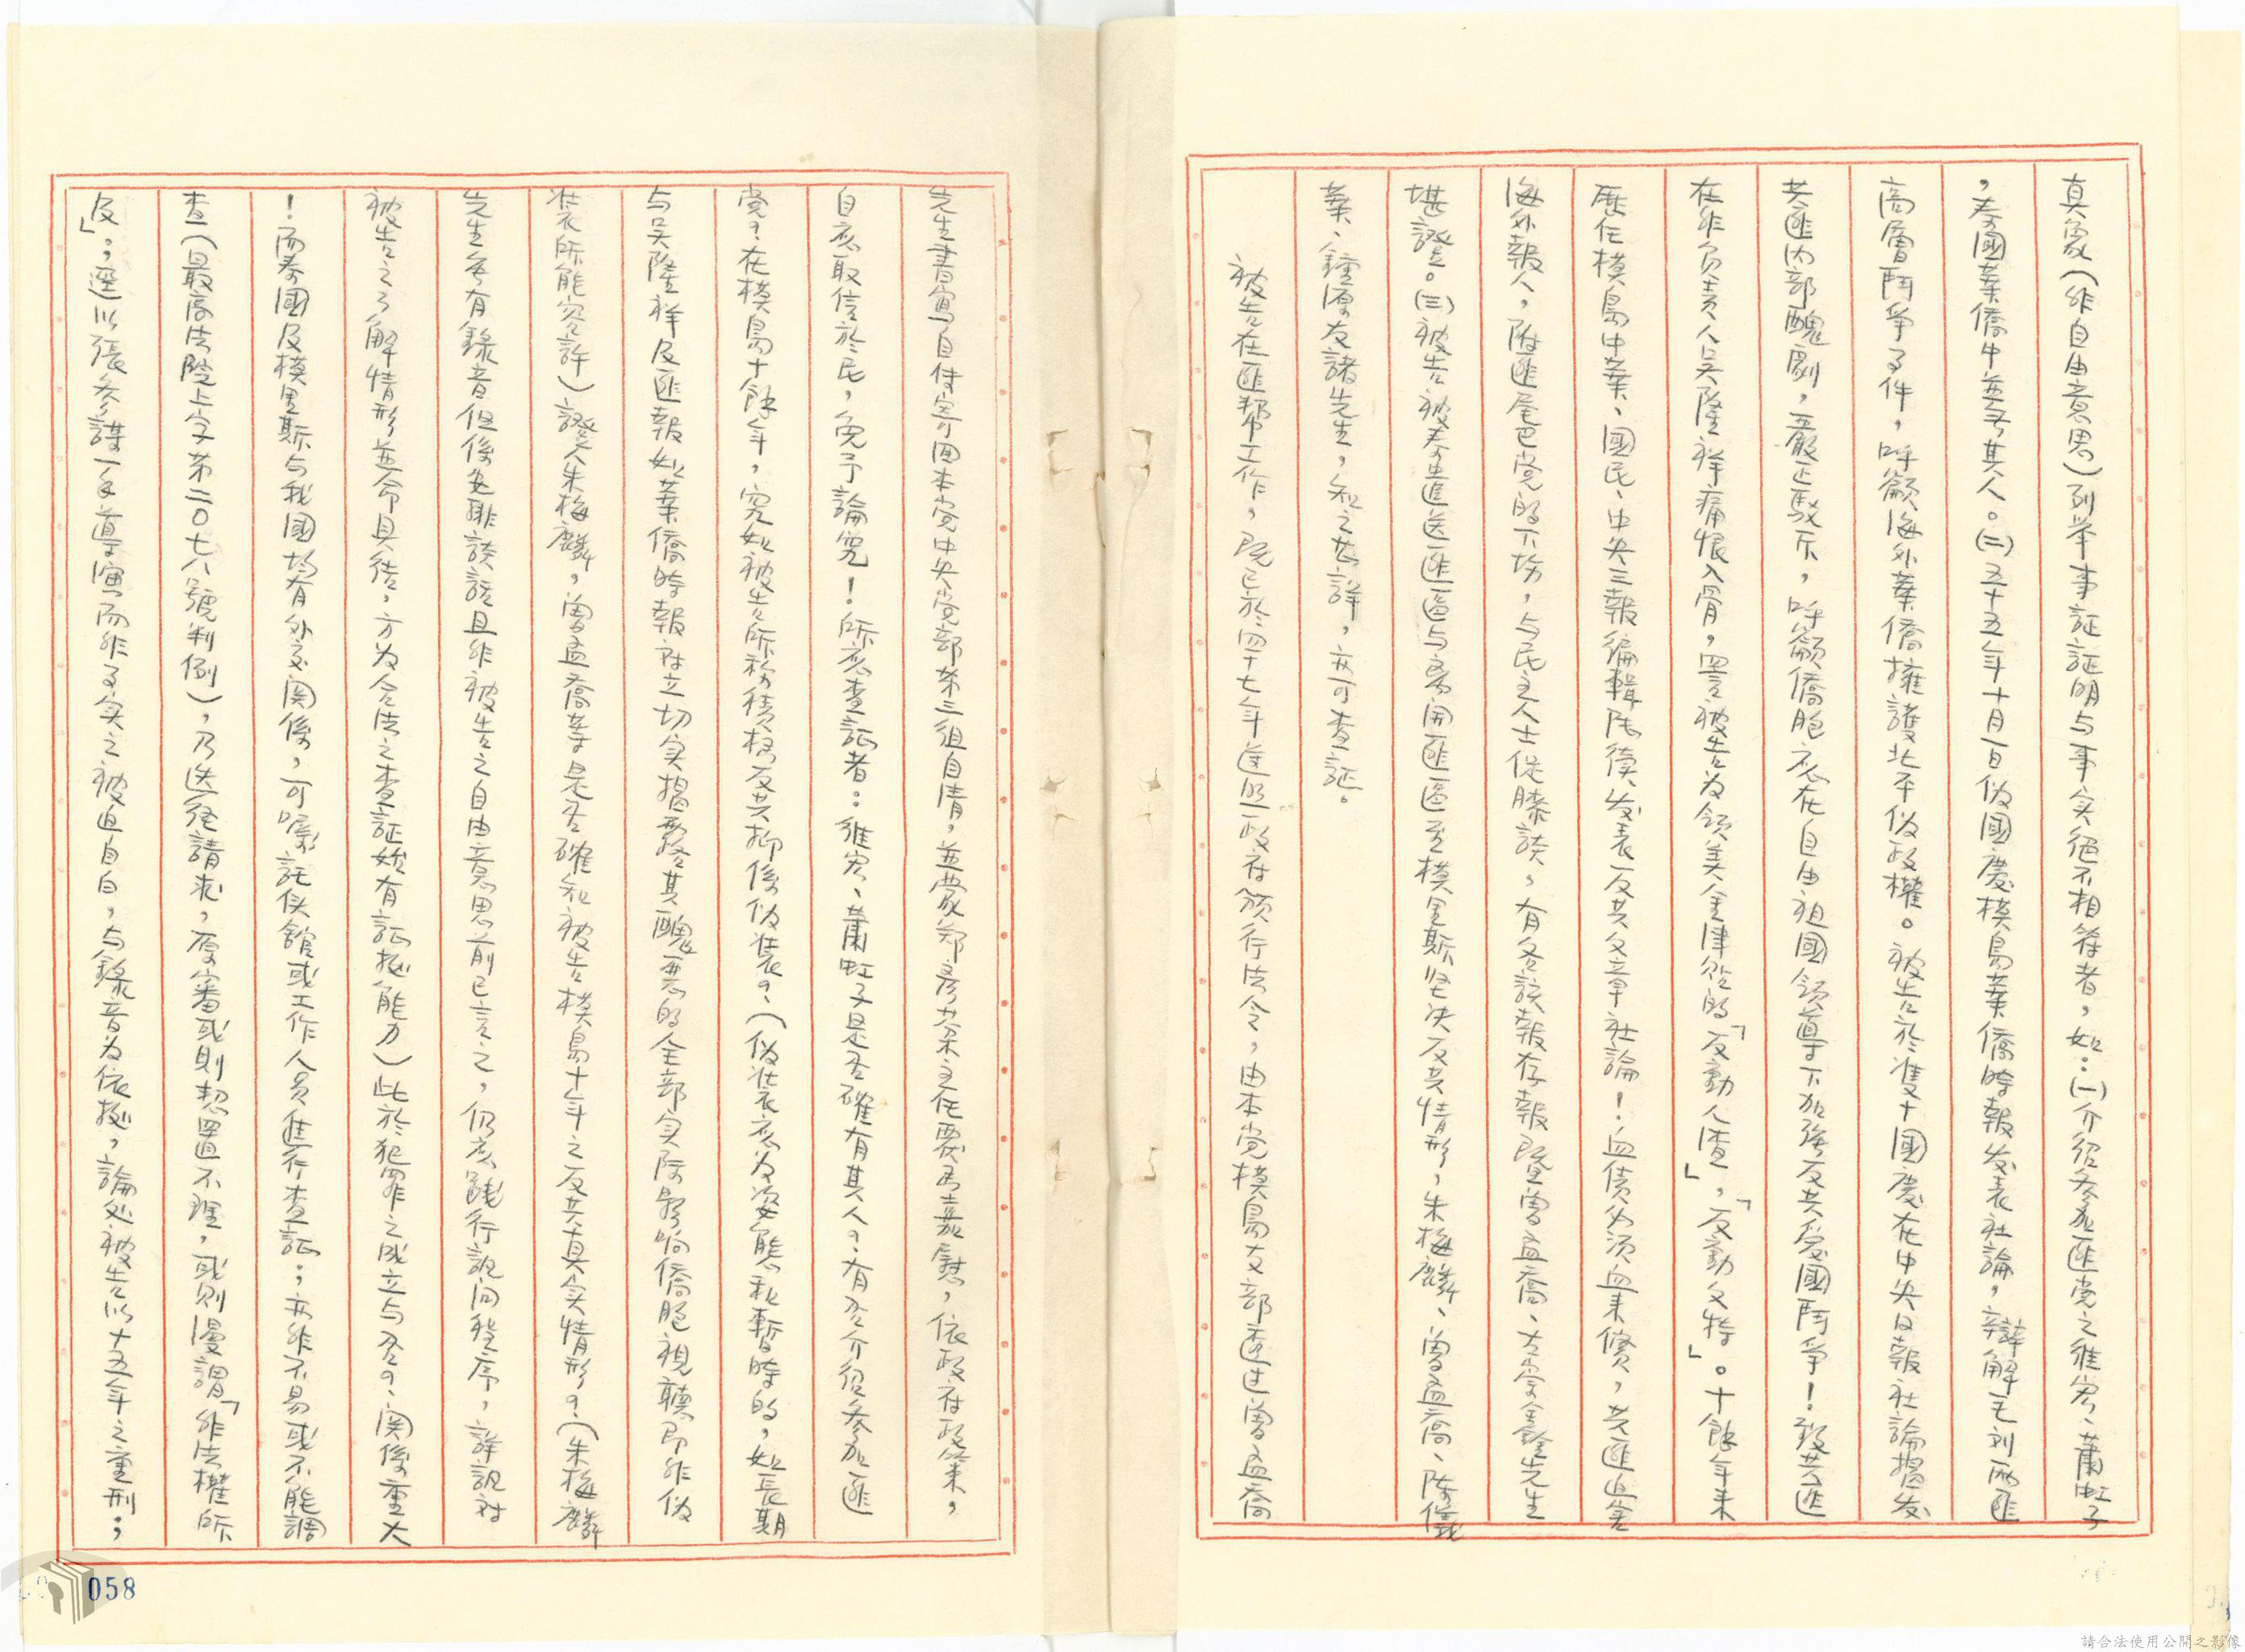 真象(非自由意思)列举事証証明与事实绝不相符者，如：(一)介绍参加匪党之維劳、蕭虹子
，泰國華僑中並无其人。(二)五十五年十月一日伪國慶模島華僑時報发表社論，辯解毛刘两匪
高層鬥争事件，呼籲海外華僑擁護北平伪政權。被告於双十國慶在中央日報社論揭发
共匪内部醜劇，嚴正駁斥，呼籲僑胞应在自由祖國領導下加強反共爱國鬥争！致共匪
在非负责人吴隆祥痛恨入骨，罵被告为領美金津貼的「反動人渣」，「反動文特」。十餘年来
歷任模島中華、國民、中央三報編輯陆續发表反共文章社論！血债必须血来償，共匪迫害
海外報人，附匪尾巴党的下场，与民主人士促膝談，有各該報存報暨曾孟喬、古学鑫先生
堪證。(三)被告被泰遣送匪區与离開匪區至模里斯坚决反共情形，朱梅麟、曾孟喬、陈儀
華、鍾源友諸先生，知之甚詳，亦可查証。
被告在匪帮工作，既已於四十七年遵照政府頒行法令，由本党模島支部透过曾孟喬
先生書寫自傳寄回本党中央党部第三组自清，並蒙郑彦棻主任覆函嘉慰，依政府政策，
自应取信於民，免予論究！所应查証者：維劳、蕭虹子是否確有其人？有否介绍参加匪
党？在模島十餘年，究如被告所称積極反共抑係伪装？(伪装应为姿態和暫時的，如長期
与吴隆祥及匪報如華僑時報社立切实揭發其醜惡的全部实际影响僑胞視聽即非伪
装所能容許)證人朱梅麟，曾孟喬等是否確知被告模島十年之反共真实情形？(朱梅麟
先生年有錄音但係電聯談話且非被告之自由意思前已言之，仍应踐行訊问程序，詳訊对
被告之了解情形並命具结，方为合法之查証始有証据能力)此於犯罪之成立与否？関係重大
！而泰國及模里斯与我國均有外交関係，可嘱託使館或工作人員進行查証；亦非不易或不能調
查(最高法院上字第二〇七八號判例)，乃迭经請求，原審或則恝置不理，或則漫謂「非法權所
及」；逕以張参謀一手導演而非事实之被迫自白，与錄音为依据，論处被告以十五年之重刑；
058
請合法使用公開之影像